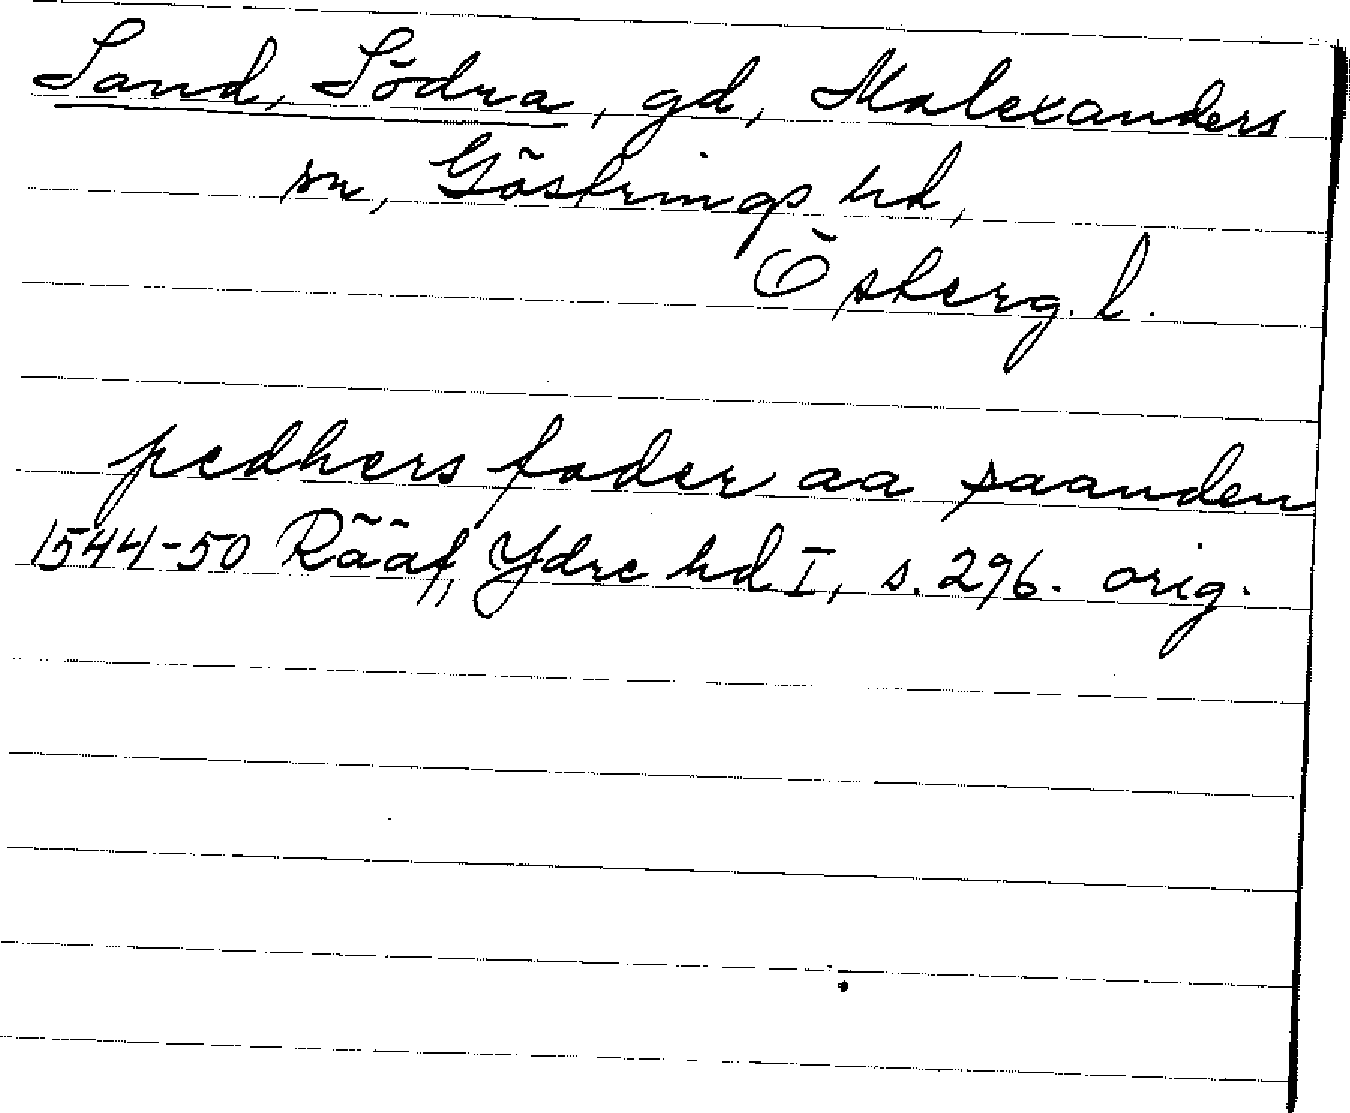 Sand, Södra, gd, Malexanders
sn, Göstrings hd,
Österg. l.
pedhers fader aa saanden
1544-50 Rääf, Ydre hd I, s. 296. orig.